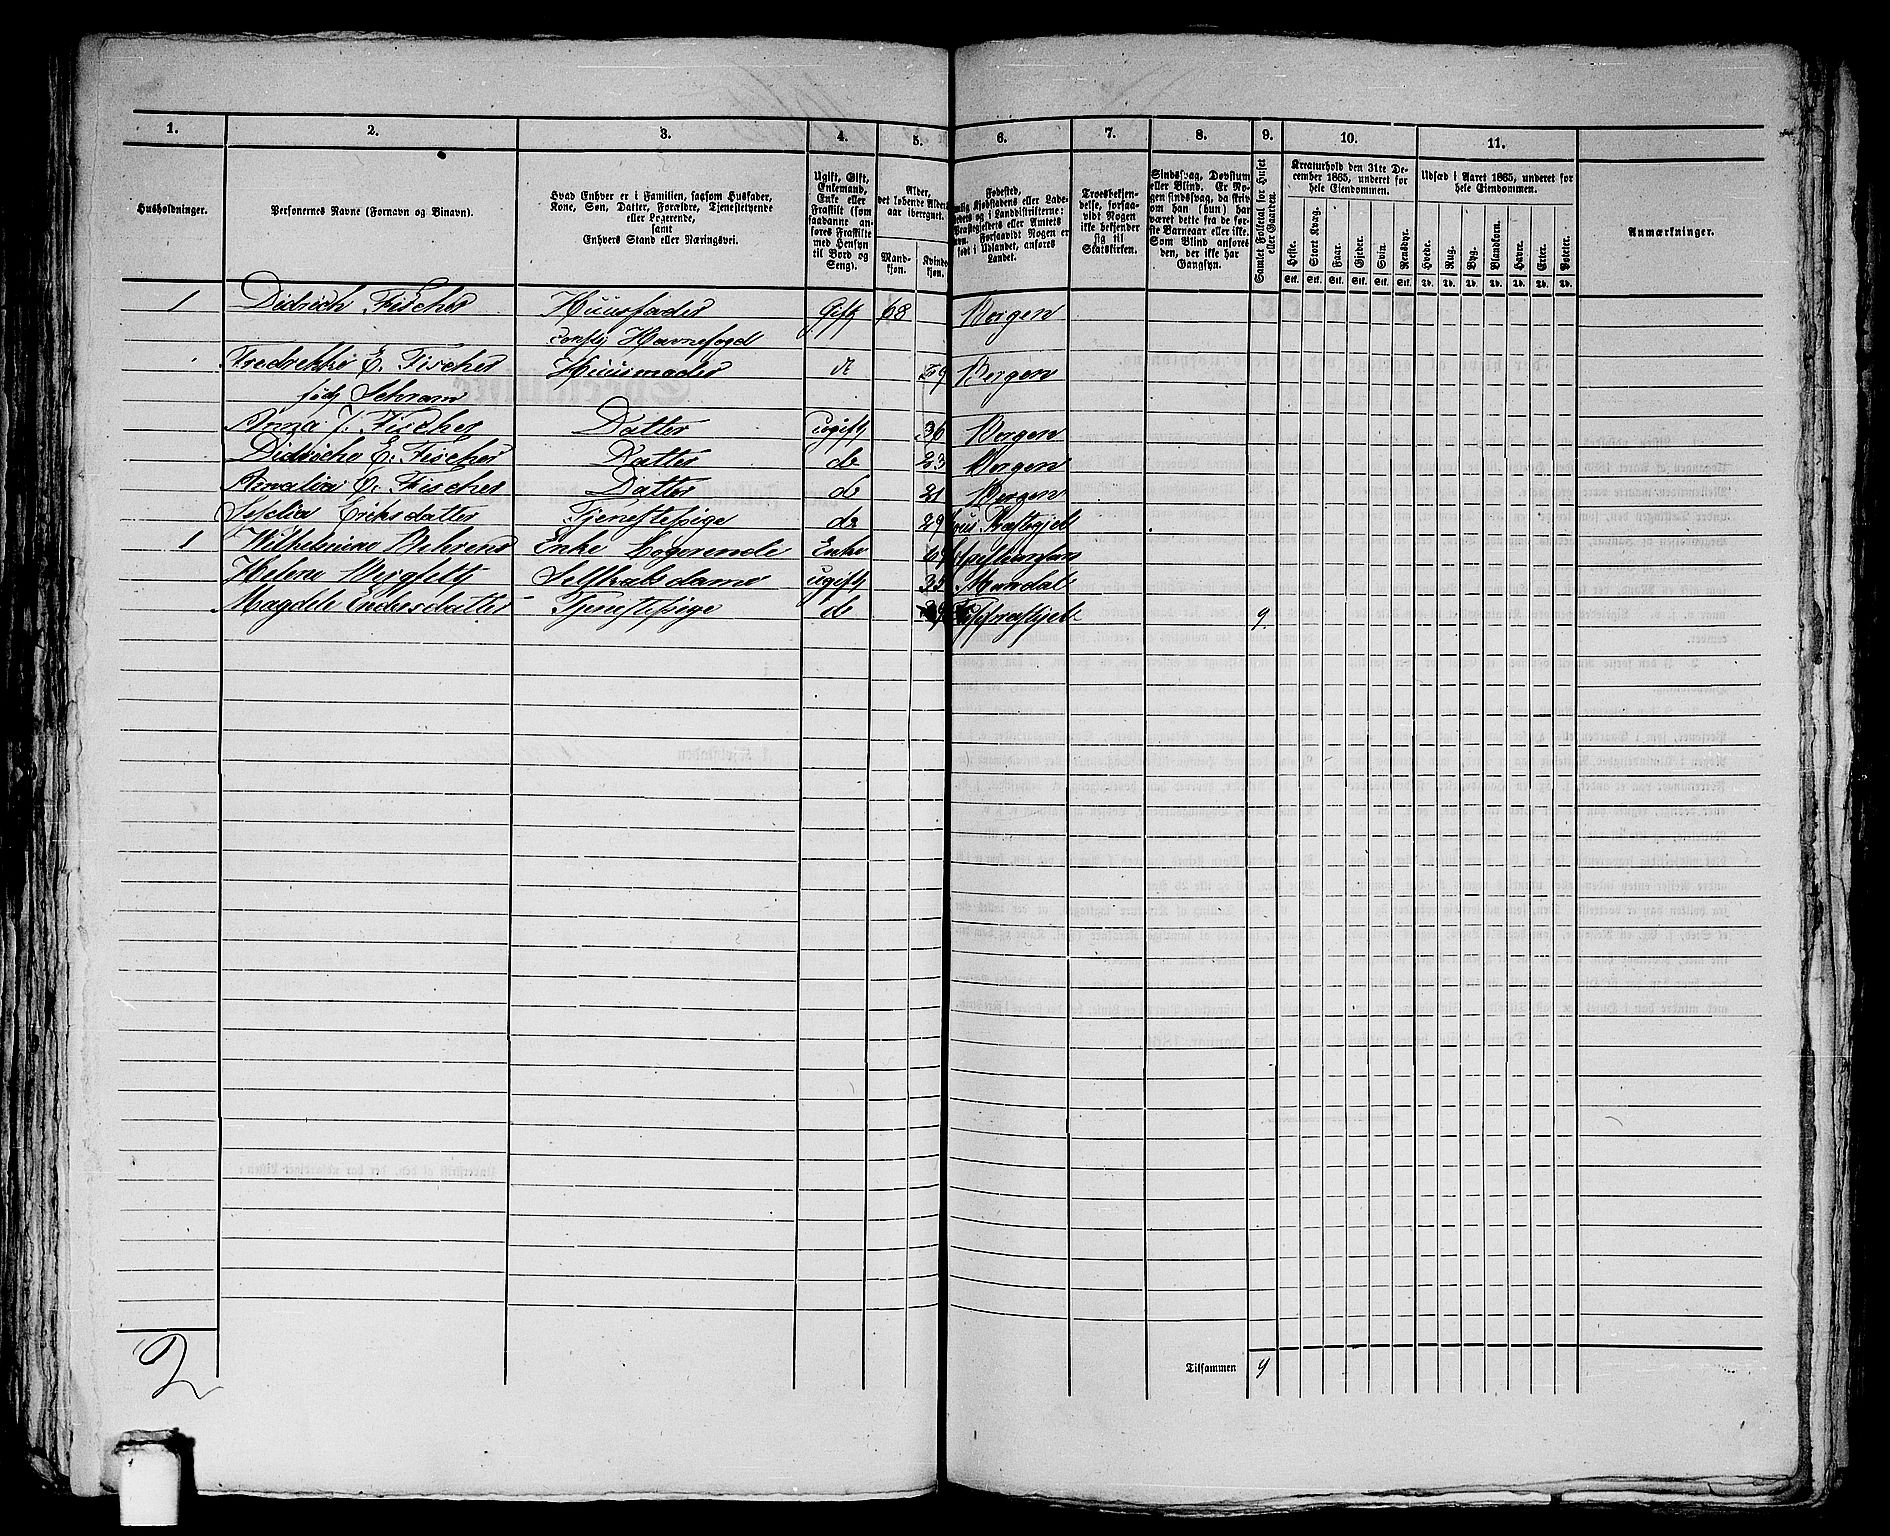 1. 2. 3. 4. 5. 6. 7. 8. 9. 10. 11.
Husholdninger.
Personernes Navne (Fornavn og Binavn).
Hvad Enhver er i Familien, saasom Husfader, Kone, Søn, Datter, Forældre, Tjenestetyende eller Logerende, samt Enhvers Stand eller Næringsvei.
Ugift, Gift, Enkemand, Enke eller Fraskilt (som saadanne anføres Fraskilte med Hensyn til Bord og Seng).
Alder, det løbende Alders-aar iberegnet.
Mandkjøn. Kvindekjøn.
Fødested,
Forsaavidt Nogen er født i Udlandet, anføres Landet.
Troesbekjendelse, forsaavidt Nogen ikke bekjender sig til Statskirken.
Sindssvag, Døvstum eller Blind. Er Nogen sindssvag, da skrives om han (hun) har været dette fra de første Barneaar eller ikke. Som Blind anføres den, der ikke har Gangsyn.
Samlet Folketal for Huset eller Gaarden.
Kreaturhold den 31te December 1865, underet for hele Eiendommen.
Heste. Stort Kvæg. Faar. Gjeder. Svin. Rensdyr.
Stk. Stk. Stk. Stk. Stk. Stk.
Udsæd i Aaret 1865, underet for hele Eiendommen.
Hvede. Rug. Byg. Blandkorn. Havre. Erter. Poteter.
Td. Td. Td. Td. Td. Td. Td.
Anmærkninger.
1 Didrich Fischer Huusfader Gift 68 Bergen
Havnefogd
Fredrikke E. Fischer Huusmoder Bergen
født Schram
Anna J. Fischer Datter ugift 36 Bergen
Didricke E. Fischer Datter do 23 Bergen
Amalia C. Fischer Datter do 21 Bergen
Eriksdatter Tjenestepige do 29
1 Wilhelmine Behrens Enke Logerende Enke
Helene Selskabsdame ugift 35 Mandal
Magdele Endersdatter Tjenestepige do 9
2
Tilsammen 9